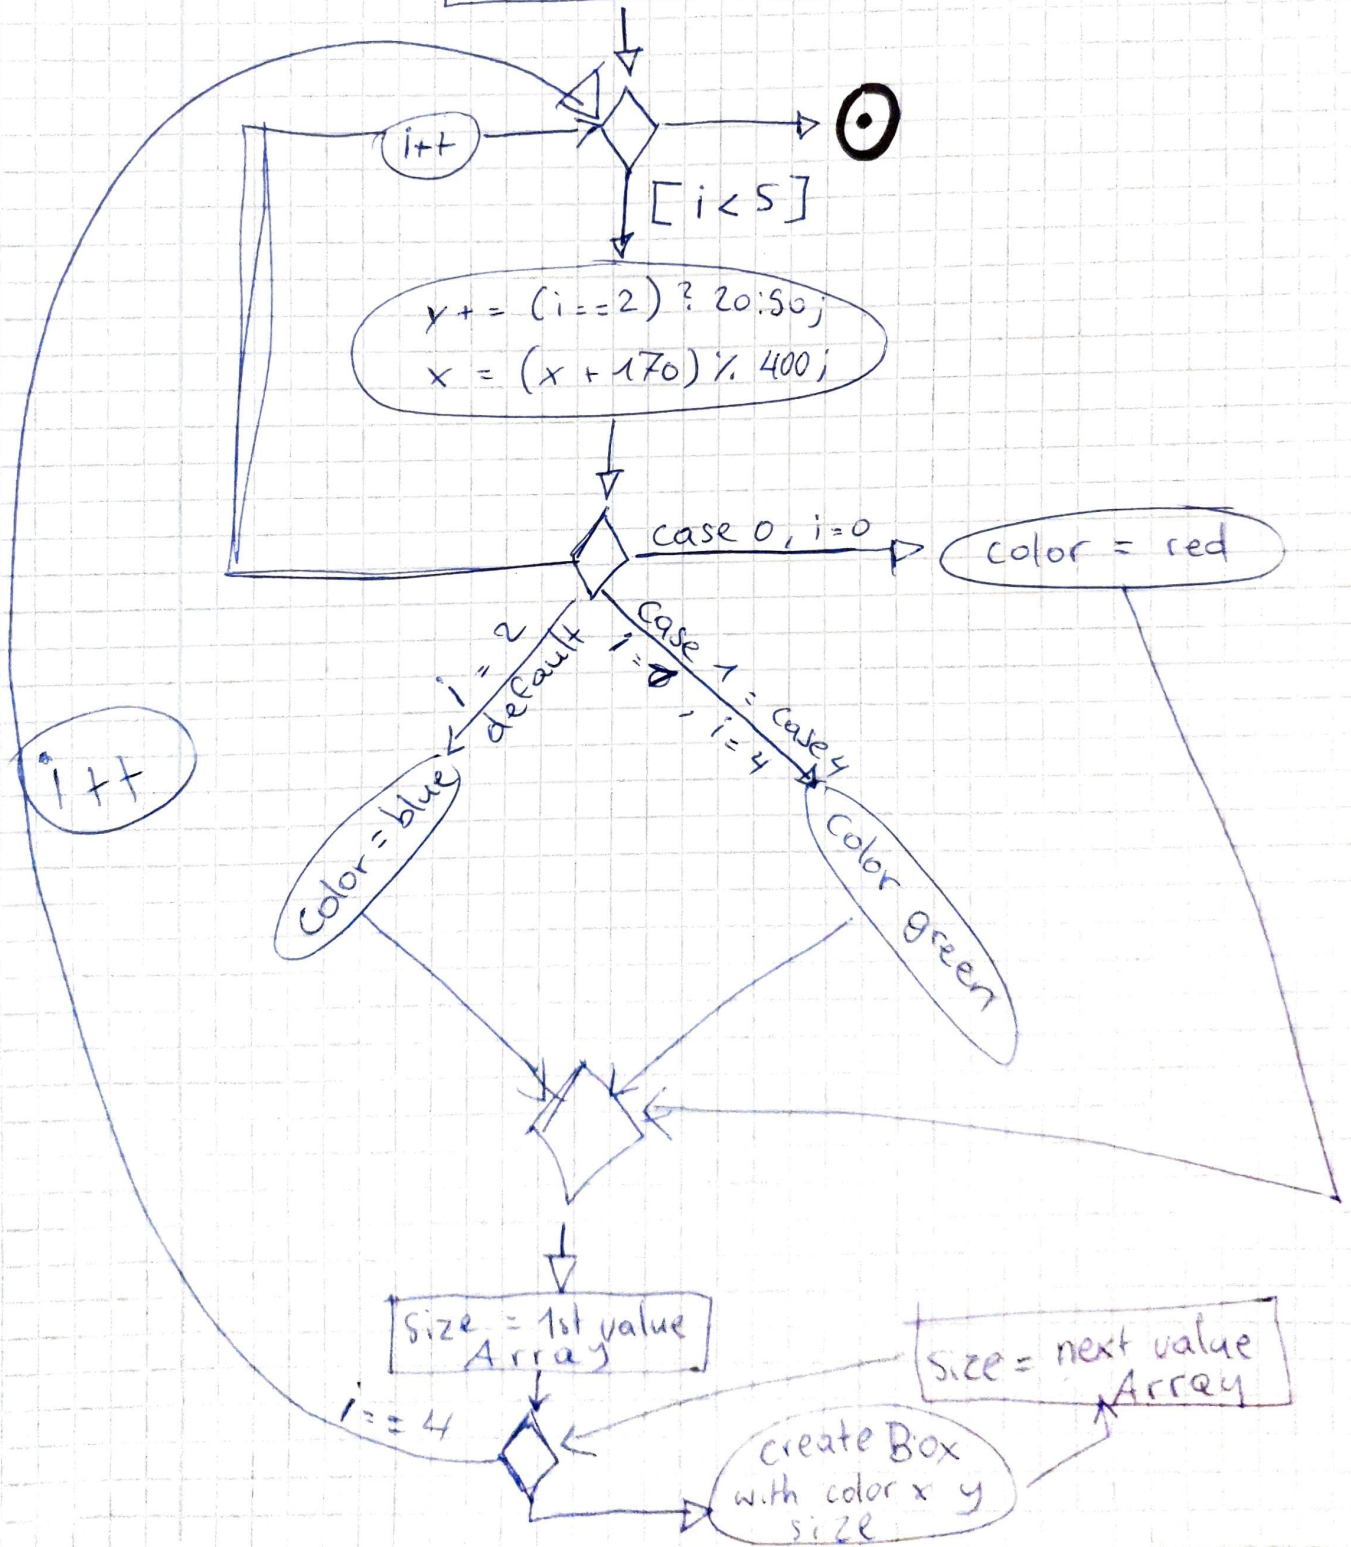 i++
[i<5]
y+= (i==2) ? 20:50;
x = (x+170) % 400;
case 0, i=0
color = red
i = 2
default
case 1 = case 4
i = , i = 4
i++
color = blue
color green
size = 1st value
Array
size = next value
Array
i == 4
create Box
with color x y
size